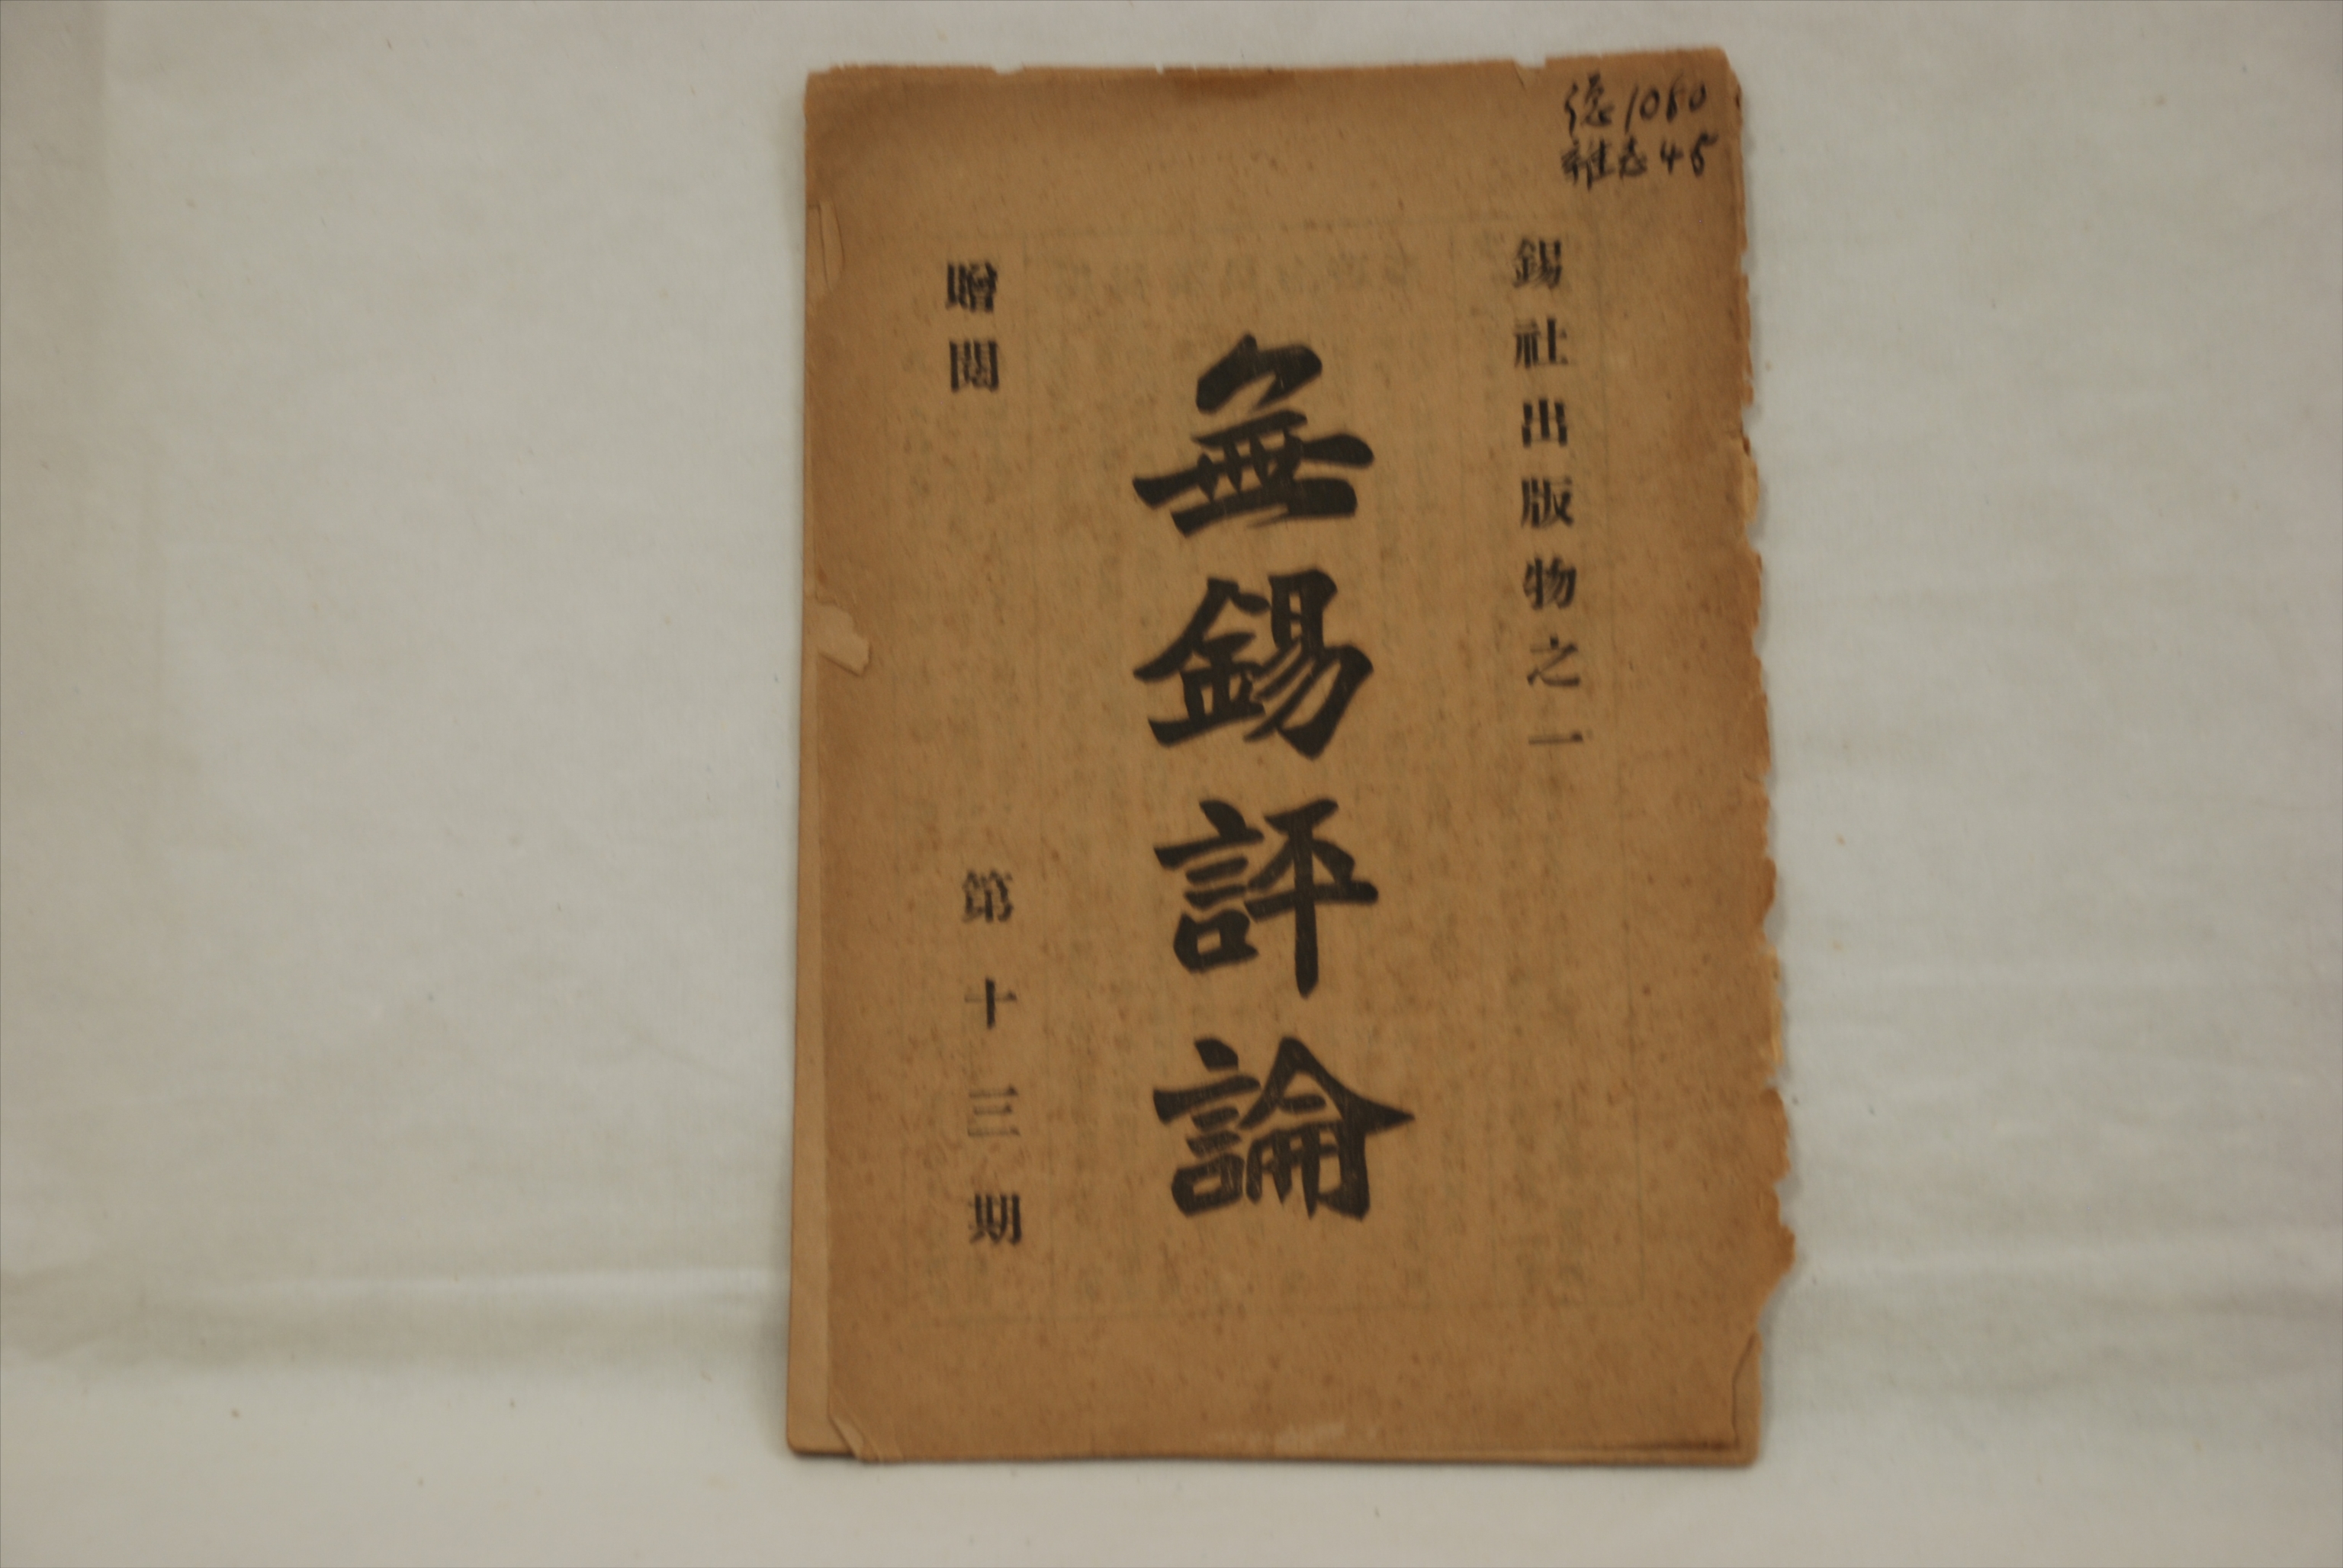 德1080
雜志45
錫社出版物之一
無錫評論
贈閱
第十三期